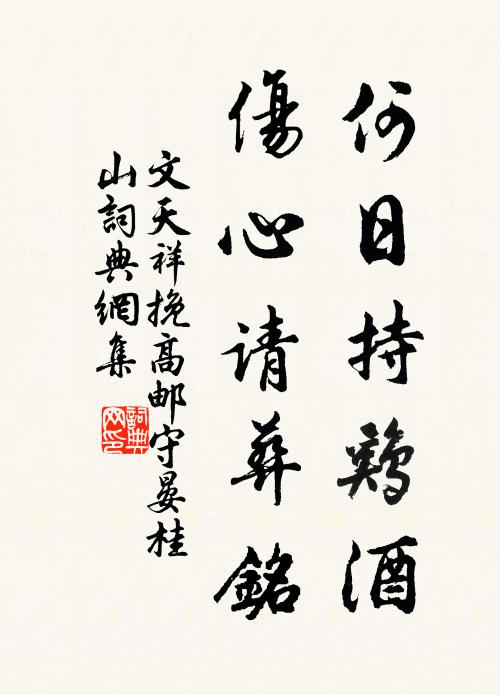 何日持鷄酒
傷心请葬銘
文天祥挽高邮守晏桂
山詞典網集
詞典
网印